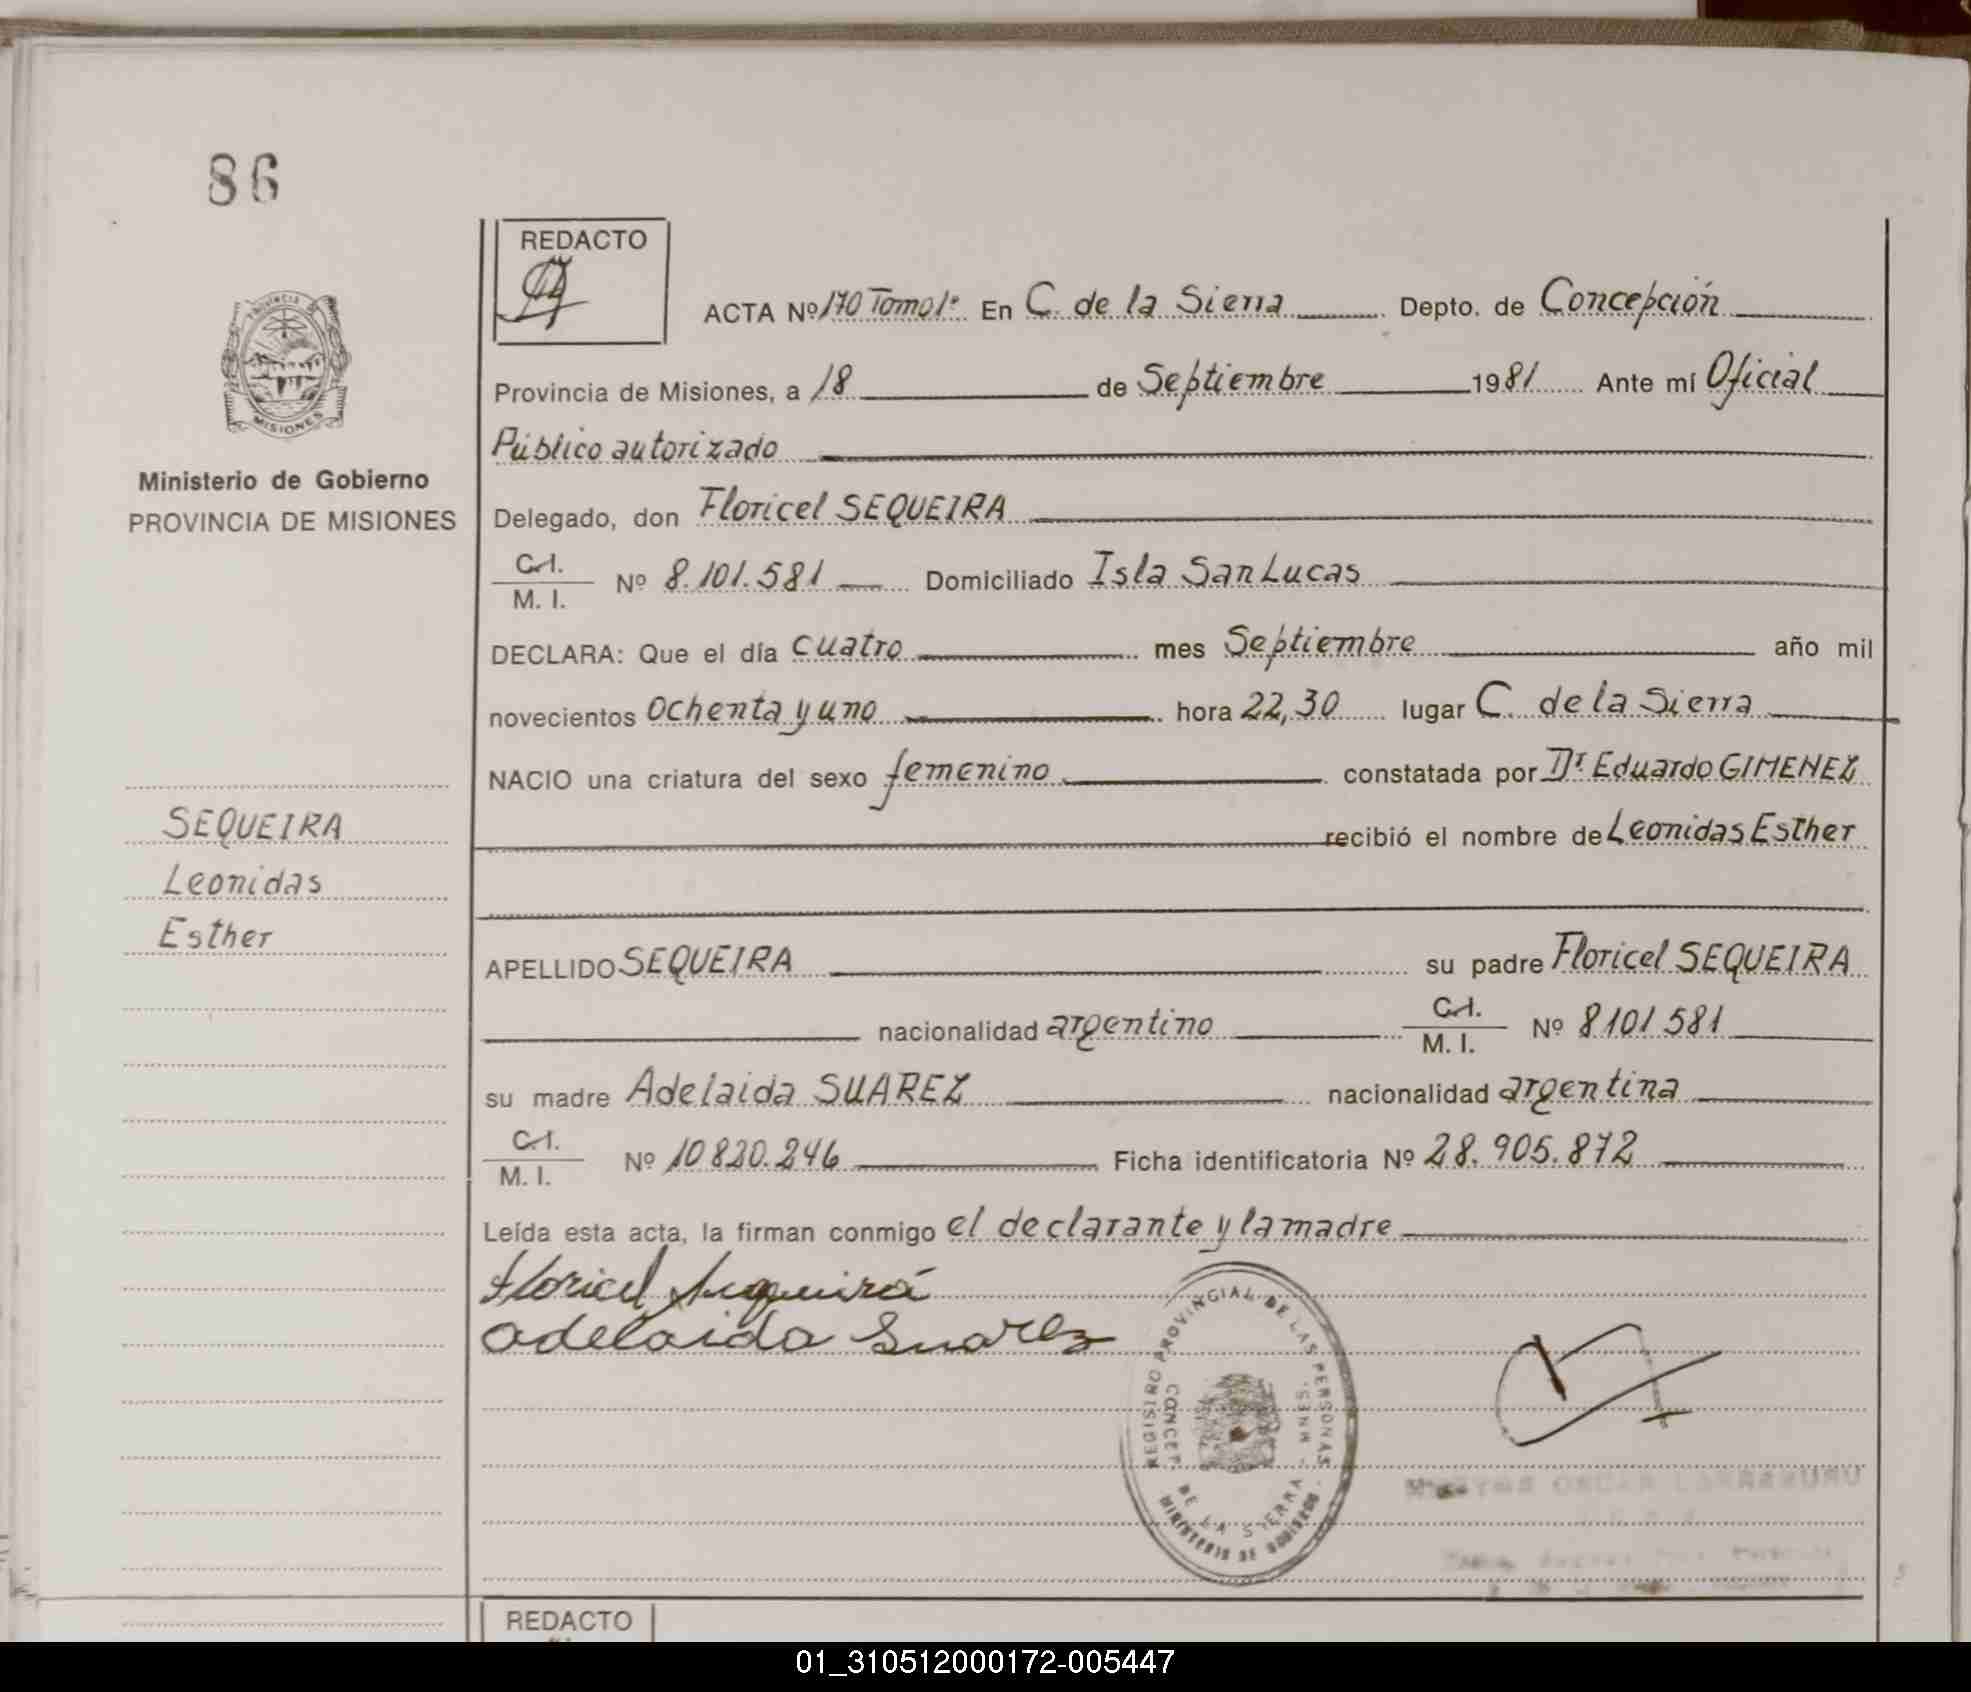 86
REDACTO
ACTA Nº 170 Tomo 1º En C. de la Sierra Depto. de Concepción
Provincia de Misiones, a 18 de Septiembre 1981 Ante mí Oficial
Público autorizado
Ministerio de Gobierno
PROVINCIA DE MISIONES
Delegado, don Floricel SEQUEIRA
C.I.
M. I. Nº 8.101.581 Domiciliado Isla San Lucas
DECLARA: Que el día cuatro mes Septiembre año mil
novecientos ochenta y uno hora 22,30 lugar C. de la Sierra
NACIO una criatura del sexo femenino constatada por Dr Eduardo GIMENEZ
recibió el nombre de Leonidas Esther
SEQUEIRA
Leonidas
Esther
APELLIDO SEQUEIRA su padre Floricel SEQUEIRA
nacionalidad argentino C.I.
M. I. Nº 8101581
su madre Adelaida SUAREZ nacionalidad argentina
C.I.
M. I. Nº 10820.246 Ficha identificatoria Nº 28.905.872
Leída esta acta, la firman conmigo el declarante y la madre
Floricel Sequeira
Adelaida Suarez
REGISTRO PROVINCIAL DE LAS PERSONAS
CONCEP. DE LA SIERRA - MNES.
MINISTERIO DE GOBIERNO
OSCAR
REDACTO
01_310512000172-005447